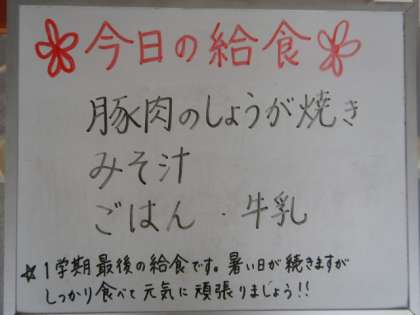 今日の給食
豚肉のしょうが焼き
みそ汁
ごはん ・ 牛乳
☆1学期最後の給食です。暑い日が続きますが
しっかり食べて元気に頑張りましょう!!